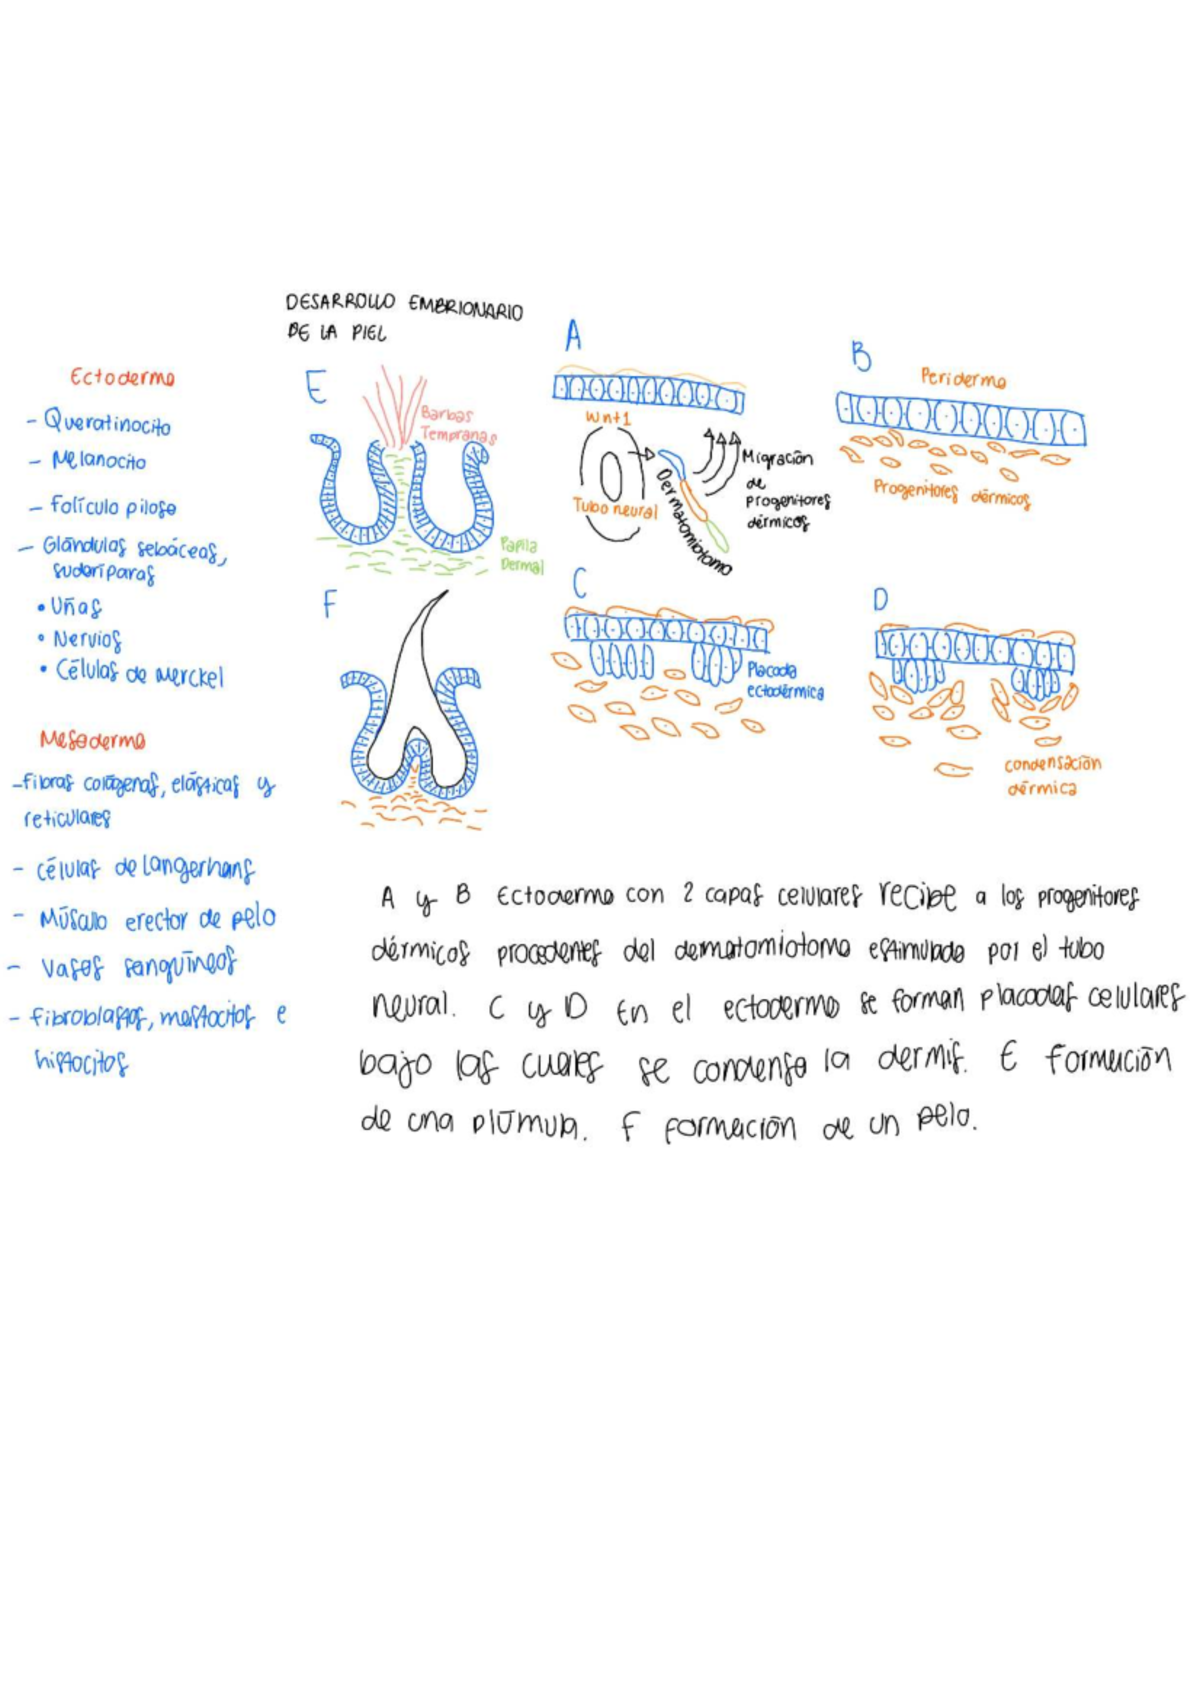 DESARROLLO EMBRIONARIO
DE LA PIEL
Ectodermo
- Queratinocito
- Melanocito
- Folículo piloso
- Glándulas sebáceas,
sudoríparas
• Uñas
• Nervios
• Células de Merckel
Mesodermo
- fibras colágenas, elásticas y
reticulares
- células de langerhans
- Músculo erector de pelo
- Vasos sanguíneos
- fibroblastos, mastocitos e
histocitos
E
Barbas
Tempranas
Papila
Dermal
F
A
Wnt1
Tubo neural
Dermatomiotomo
Migración
de
progenitores
dérmicos
B
Peridermo
Progenitores dérmicos
C
Placoda
ectodérmica
D
condensación
dérmica
A y B Ectodermo con 2 capas celulares recibe a los progenitores
dérmicos procedentes del dermatomiotomo estimulado por el tubo
neural. C y D En el ectodermo se forman placodas celulares
bajo las cuales se condensa la dermis. E Formación
de una plúmula. F formación de un pelo.